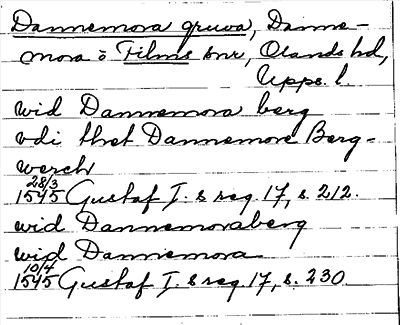 Dannemora gruva, Danne-
mora o Films snr, Olands hd,
Upps. l.
wid Dannemora berg
vdi thet Dannemore Berg-
werch
28/3 1545 Gustaf I. s reg. 17, s. 212.
wid Dannemoraberg
wid Dannemora
10/4 1545 Gustaf I. s reg. 17, s. 230